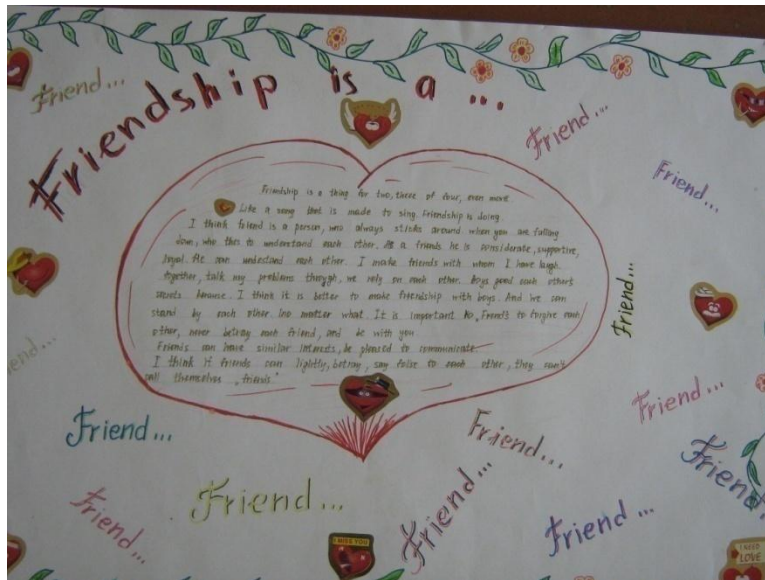 Friend...
Friendship is a ...
Friend...
Friend...
Friendship is a thing for two, three of four, even more
Like a song that is made to sing. Friendship is doing.
I think friend is a person, who always sticks around when you are falling
down, who tries to understand each other. As a friends he is considerate, supportive,
loyal. We can undestand each other. I make friends with whom I have laugh
together, talk my problems through, we rely on each other. Boys good each others
secrets because. I think it is better to make friendship with boys. And we can
stand by each other (no matter what. It is important to friends to forgive each
other, never betray each friend, and be with you.
Friends can have similar interests, be pleased to communicate.
I think if friends can lightly, betray, say false to each other, they can't
call themselves "friends"
Friend...
Friend...
Friend...
Friend...
Friend...
Friend...
Friend...
Friend...
Friend...
Friend...
Friend
I MISS YOU
I NEED
LOVE